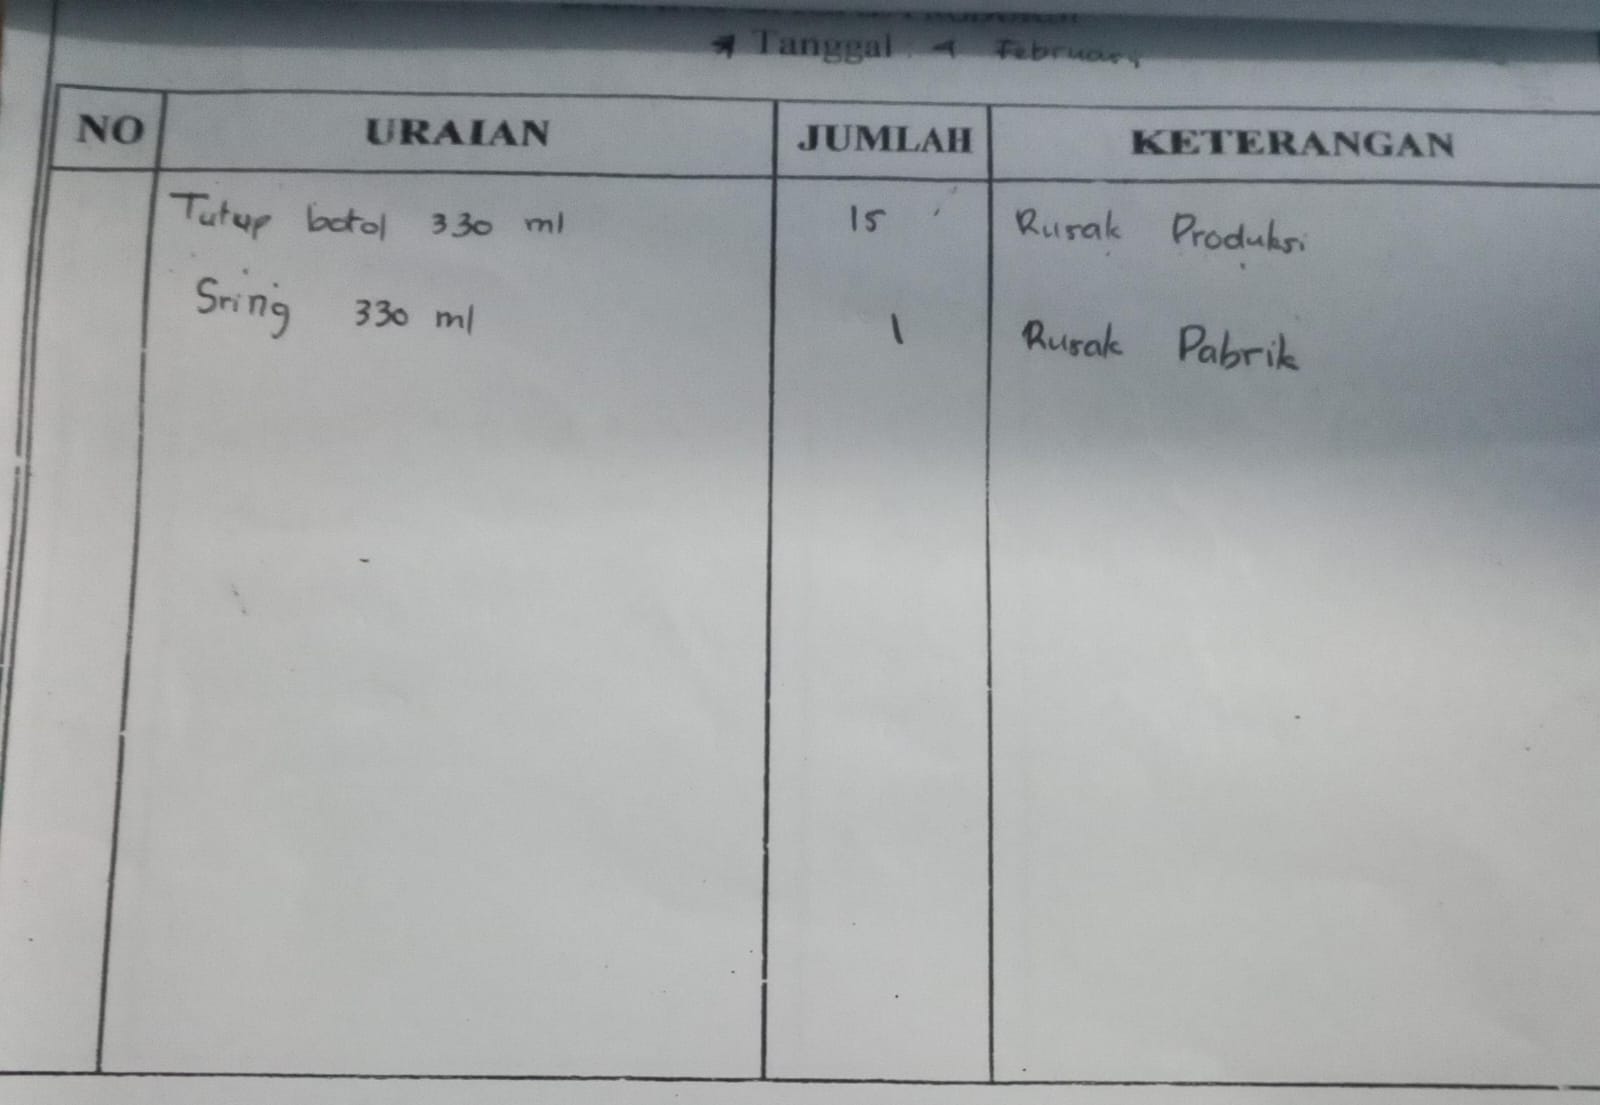 Tanggal : 4 February
NO URAIAN JUMLAH KETERANGAN
Tutup botol 330 ml 15 Rusak Produksi
Sring 330 ml 1 Rusak Pabrik